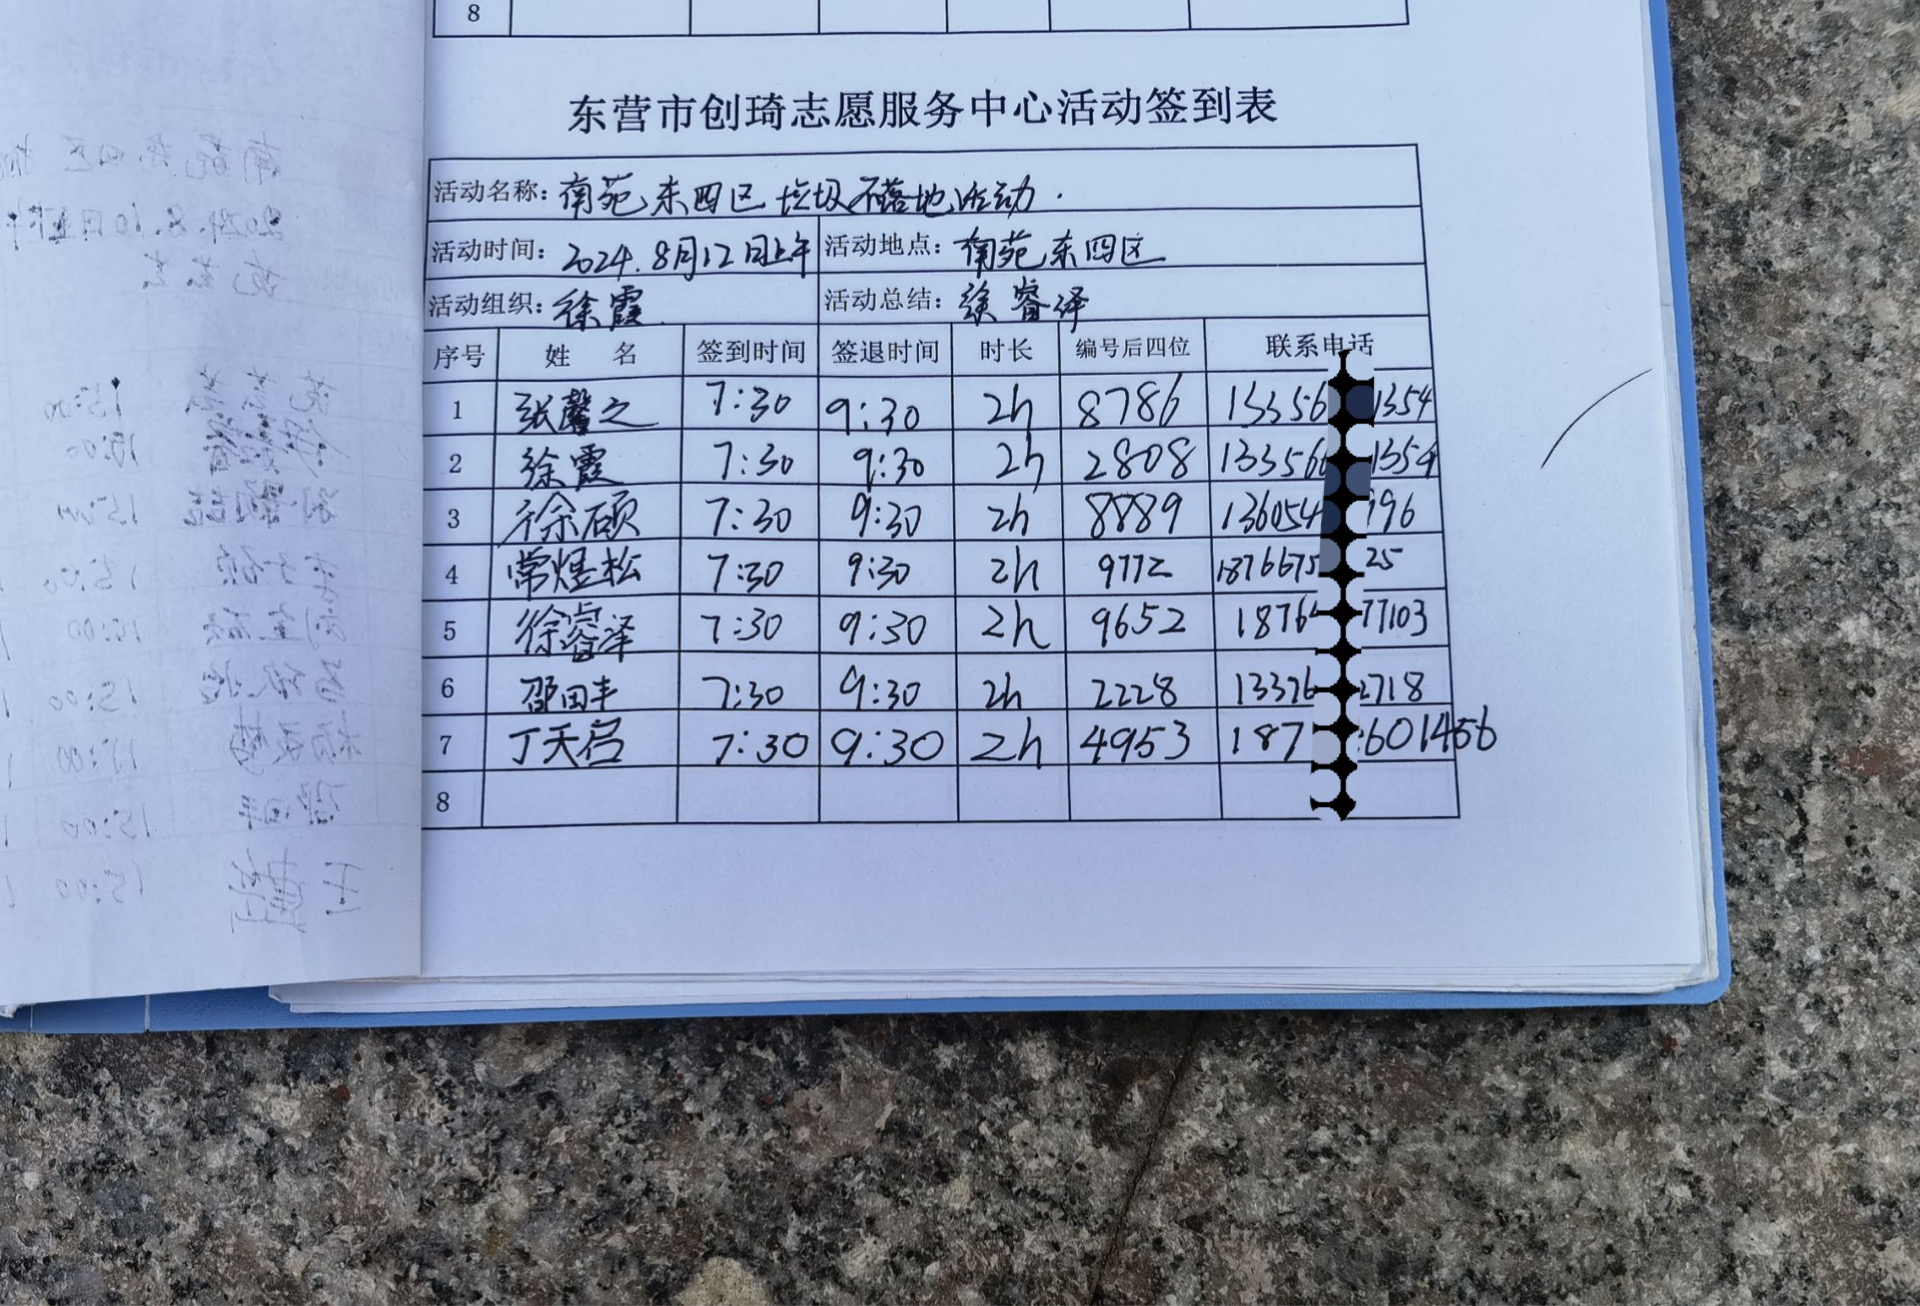 8
东营市创琦志愿服务中心活动签到表
活动名称: 南苑东四区垃圾不落地活动.
活动时间: 2024.8月12日上午 活动地点: 南苑东四区
活动组织: 徐霞 活动总结: 徐睿泽
序号 姓 名 签到时间 签退时间 时长 编号后四位 联系电话
1 张馨之 7:30 9:30 2h 8786 13356 1354
2 徐霞 7:30 9:30 2h 2808 13356 1354
3 徐硕 7:30 9:30 2h 8889 136054 996
4 常煜松 7:30 9:30 2h 9772 1876675 25
5 徐睿泽 7:30 9:30 2h 9652 1876 77103
6 邵田丰 7:30 9:30 2h 2228 13376 2718
7 丁天启 7:30 9:30 2h 4953 187 601456
8